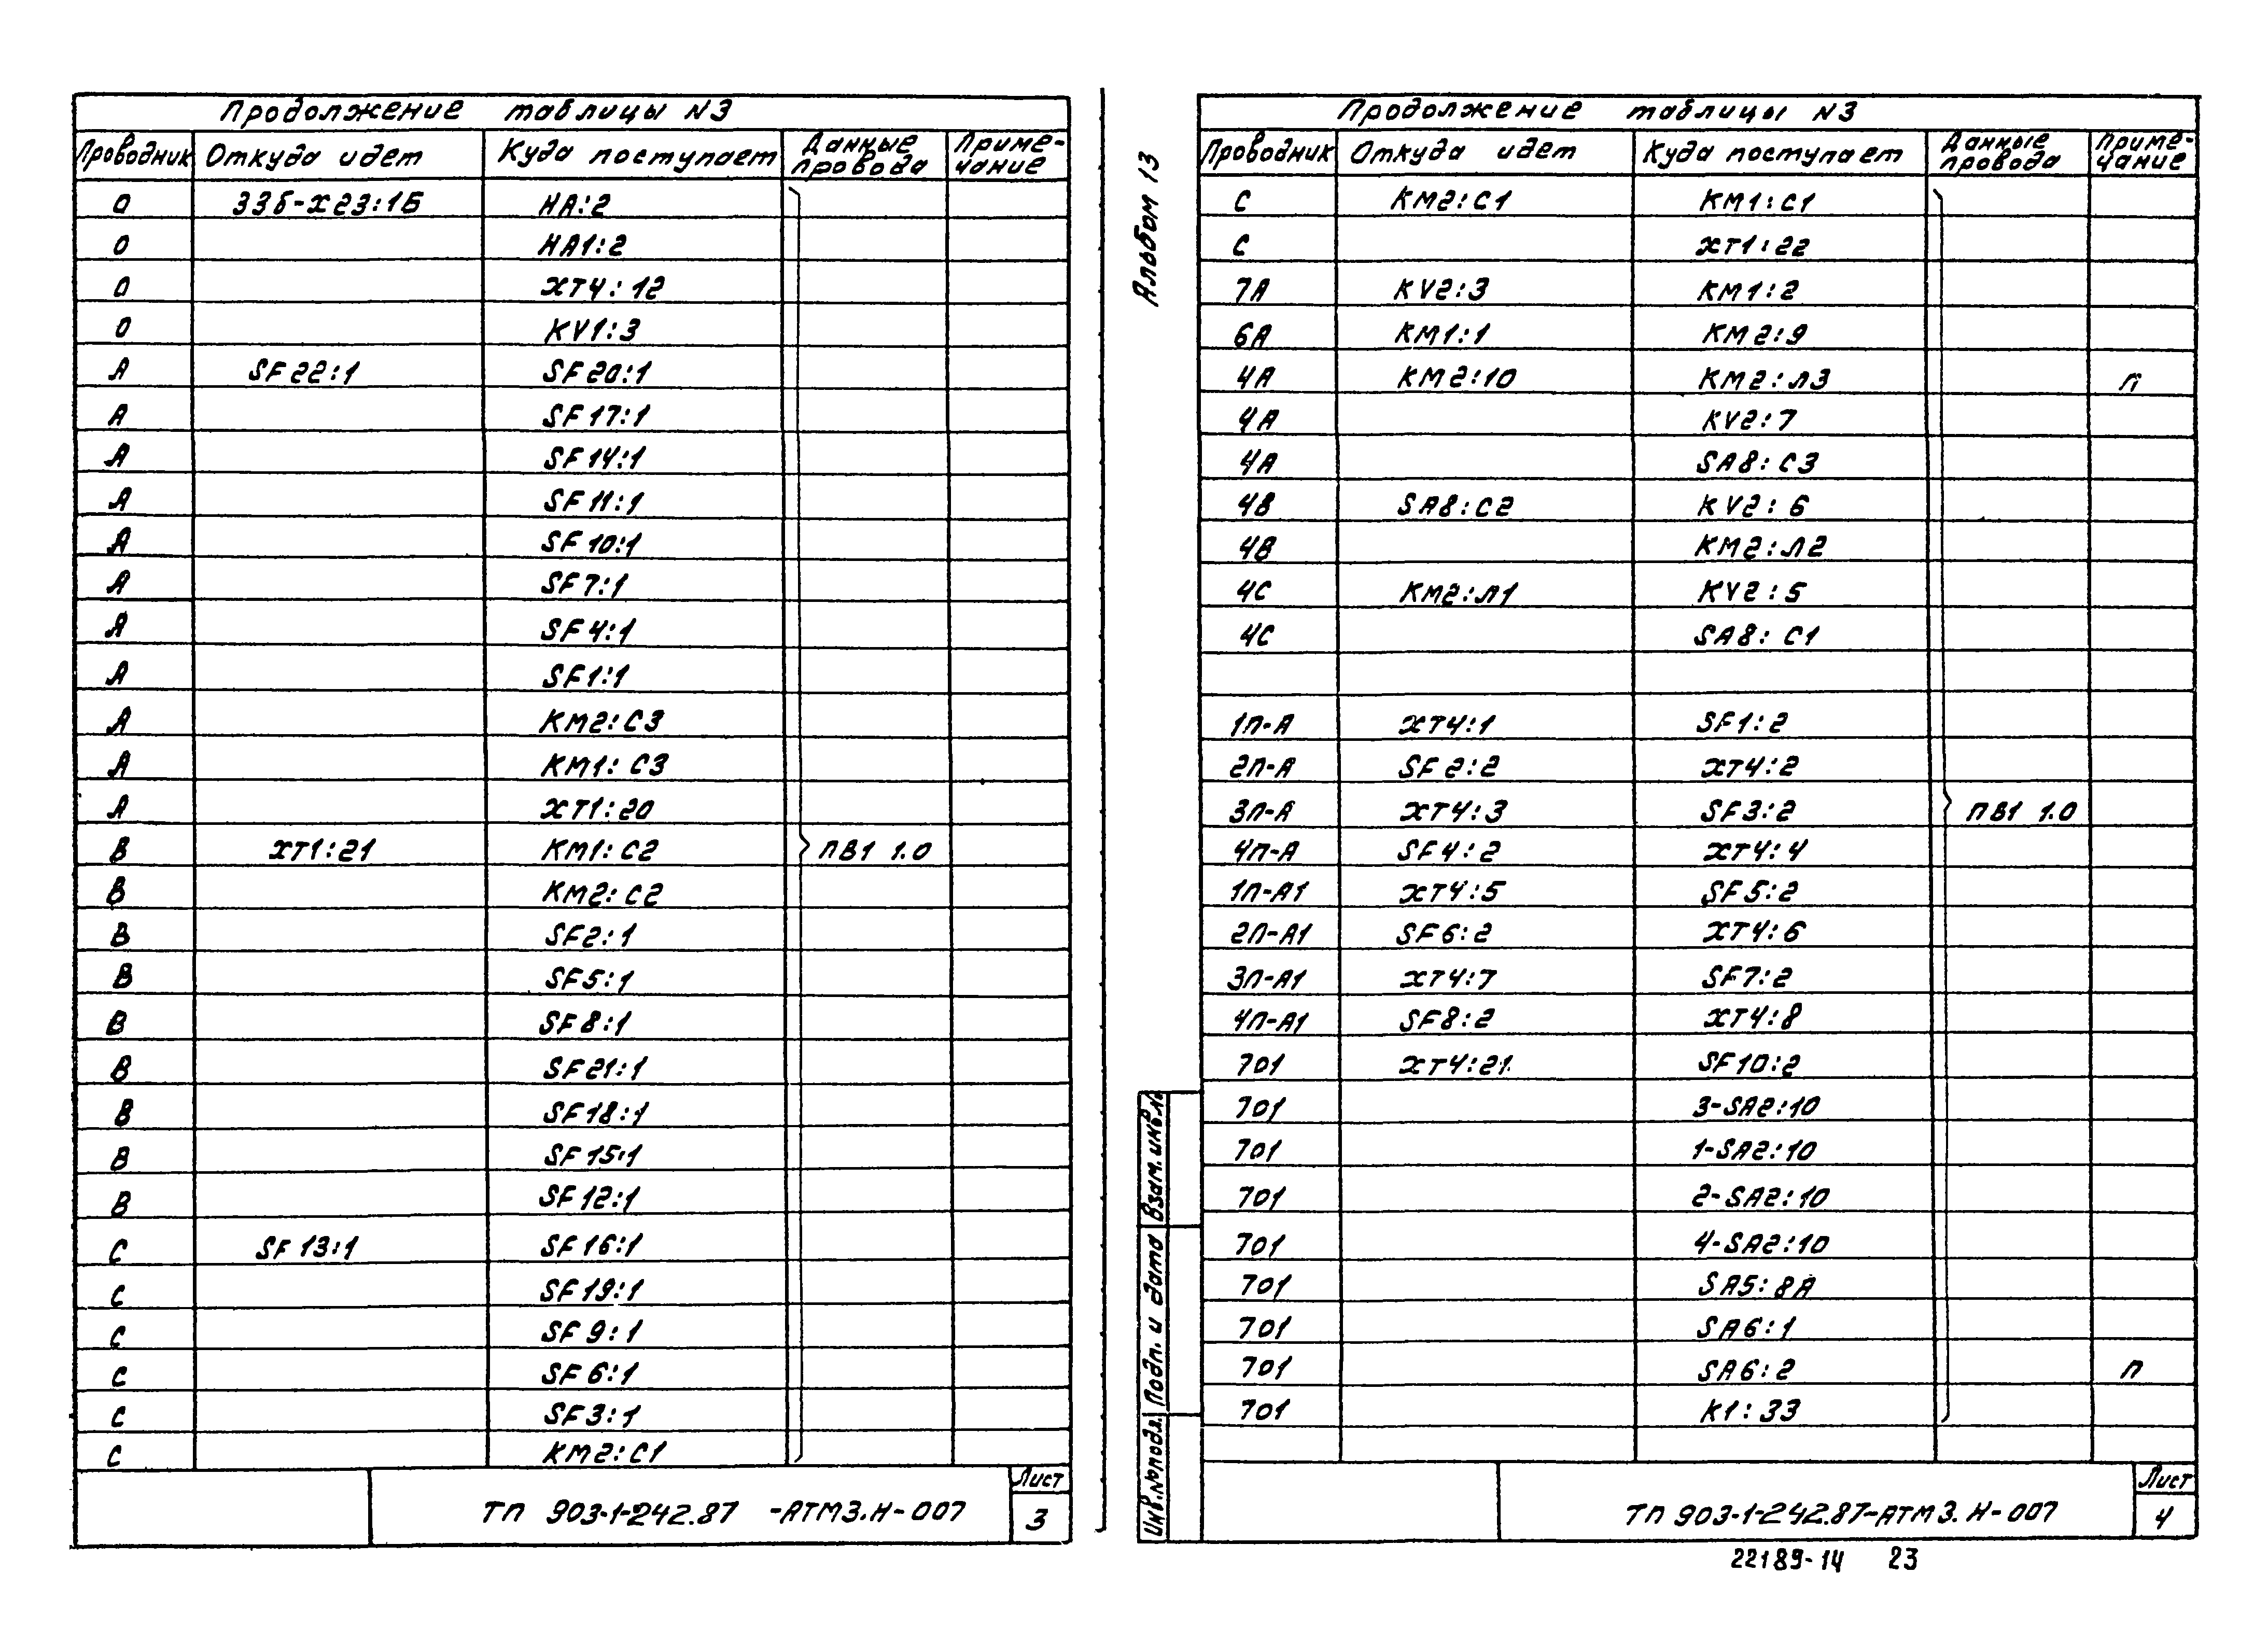 Продолжение таблицы N3
Проводник Откуда идет Куда поступает Данные провода Примечание
0 33б-X23:1Б HA:2
0 HA1:2
0 XT4:12
0 KV1:3
A SF22:1 SF20:1
A SF17:1
A SF14:1
A SF11:1
A SF10:1
A SF7:1
A SF4:1
A SF1:1
A KM2:C3
A KM1:C3
A XT1:20
B XT1:21 KM1:C2 ПВ1 1.0
B KM2:C2
B SF2:1
B SF5:1
B SF8:1
B SF21:1
B SF18:1
B SF15:1
B SF12:1
C SF13:1 SF16:1
C SF19:1
C SF9:1
C SF6:1
C SF3:1
C KM2:C1
ТП 903-1-242.87 -АТМ3.Н-007
Лист
3
Альбом 13
Продолжение таблицы N3
Проводник Откуда идет Куда поступает Данные провода Примечание
C KM2:C1 KM1:C1
C XT1:22
7A KV2:3 KM1:2
6A KM1:1 KM2:9
4A KM2:10 KM2:Л3 П
4A KV2:7
4A SA8:C3
4B SA8:C2 KV2:6
4B KM2:Л2
4C KM2:Л1 KV2:5
4C SA8:C1
1П-A XT4:1 SF1:2
2П-A SF2:2 XT4:2
3П-A XT4:3 SF3:2 ПВ1 1.0
4П-A SF4:2 XT4:4
1П-A1 XT4:5 SF5:2
2П-A1 SF6:2 XT4:6
3П-A1 XT4:7 SF7:2
4П-A1 SF8:2 XT4:8
701 XT4:21 SF10:2
701 3-SA2:10
701 1-SA2:10
701 2-SA2:10
701 4-SA2:10
701 SA5:8A
701 SA6:1
701 SA6:2 П
701 K1:33
Взам.инв.№
Подп. и дата
Инв.№подл.
ТП 903-1-242.87-АТМ3.Н-007
Лист
4
22189-14 23